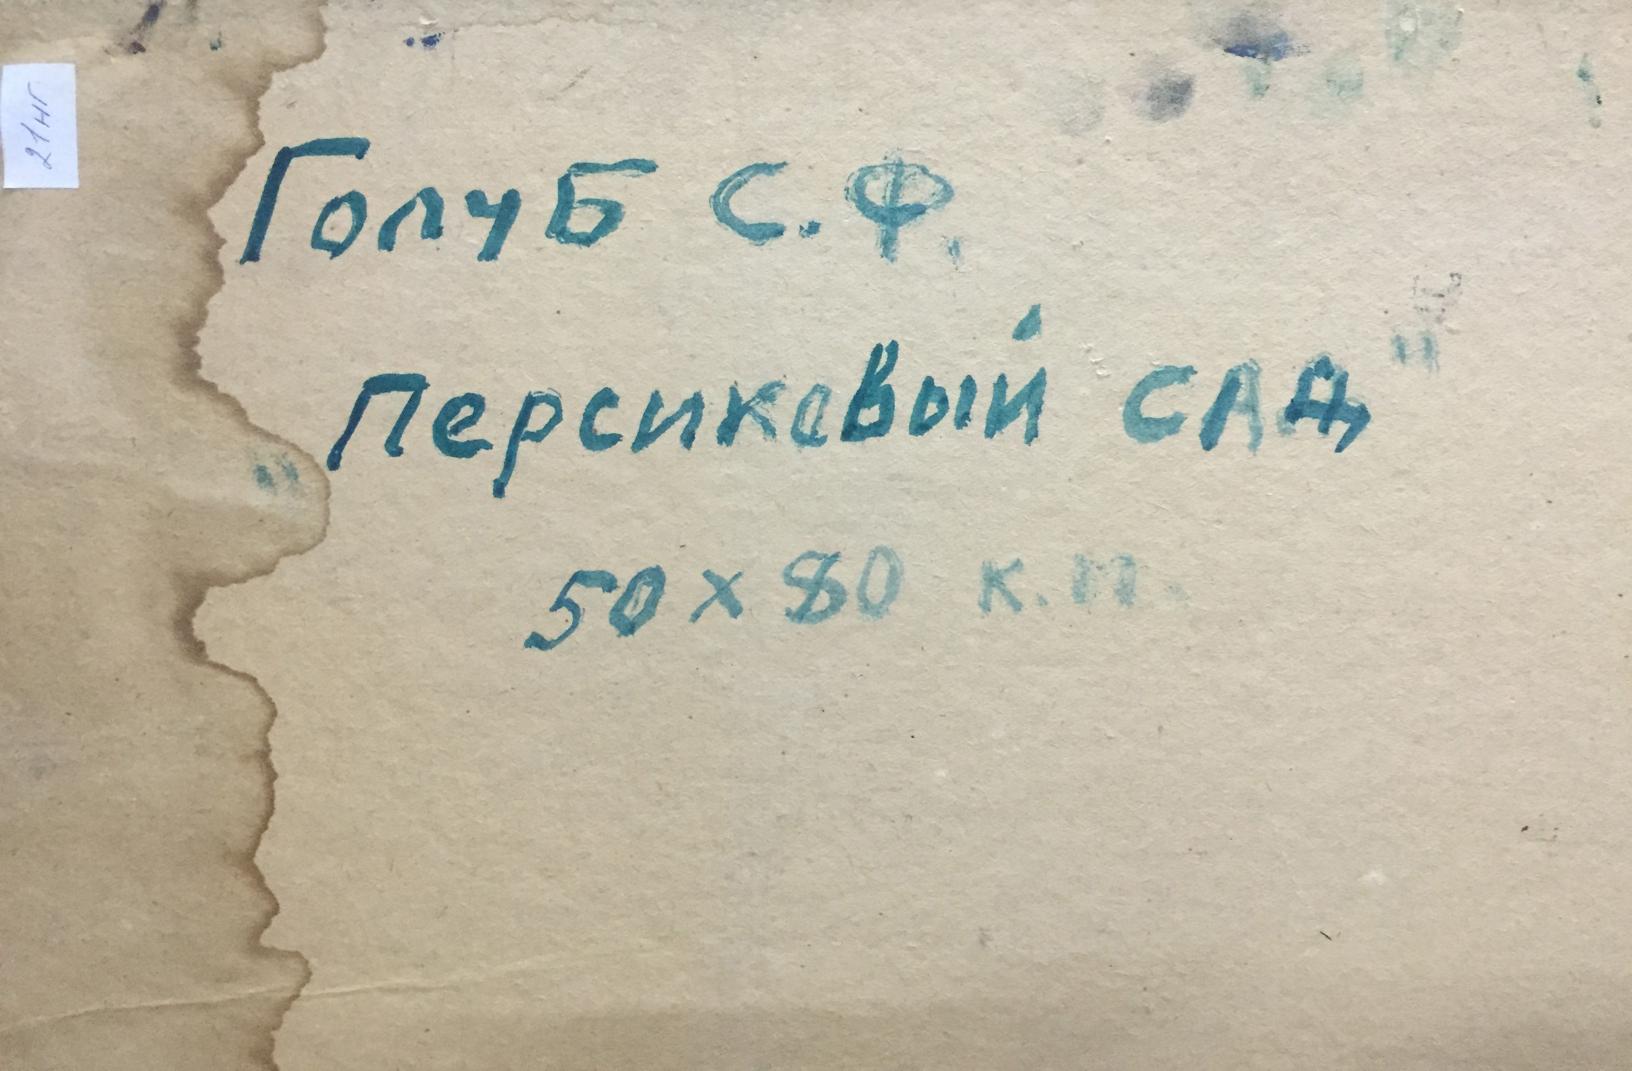 21нг
Голуб С.Ф.
"Персиковый сад"
50 x 80 к.м.